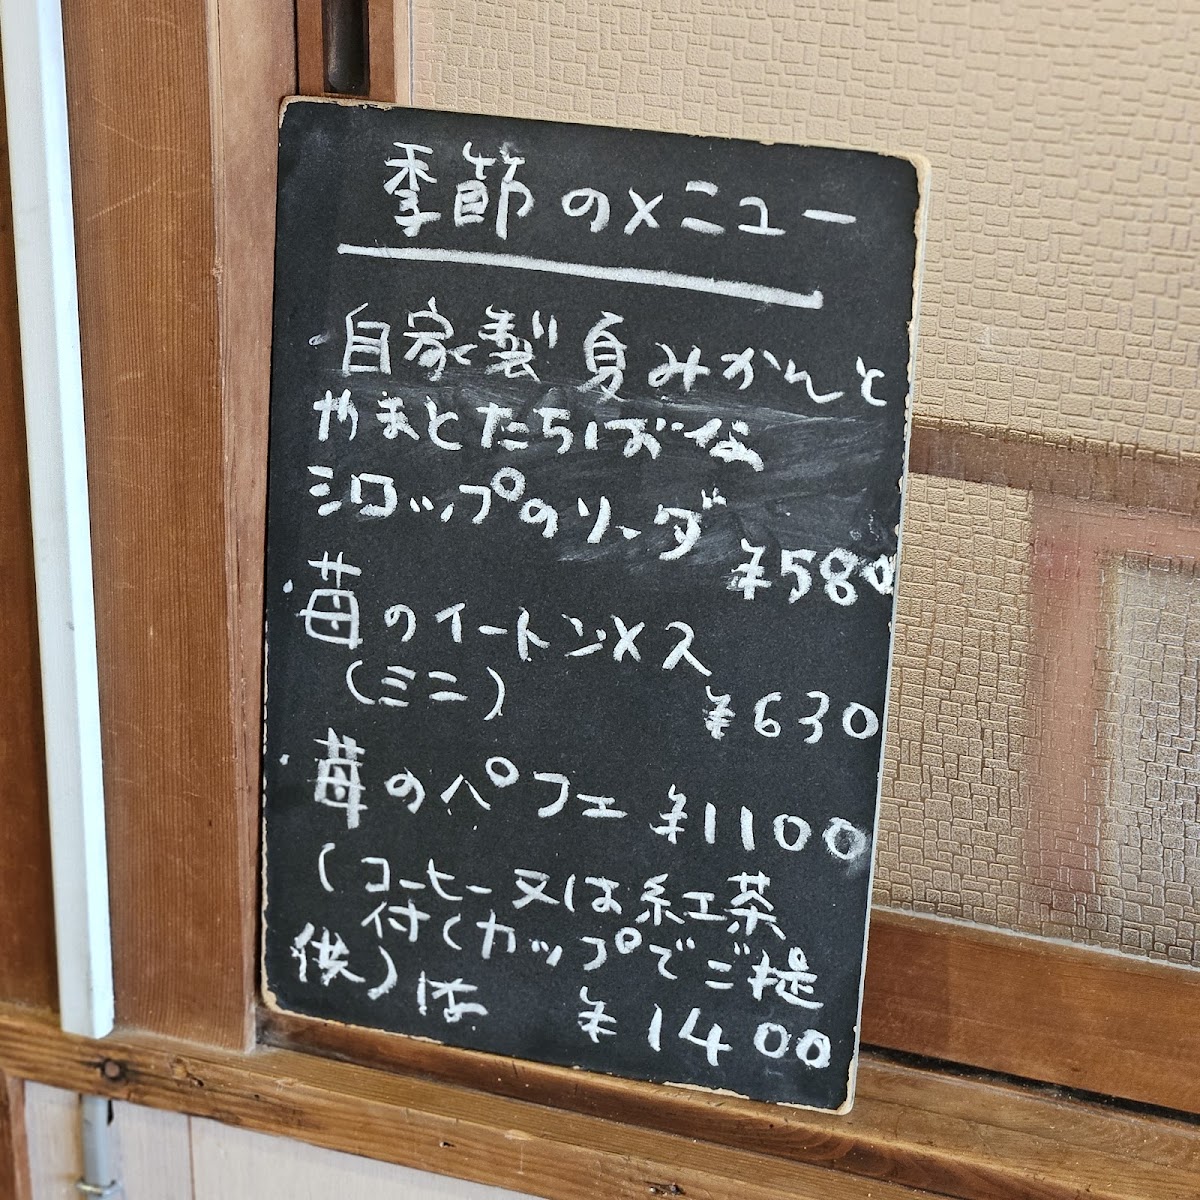 季節のメニュー
・自家製夏みかんと
やまとたちばな
シロップのソーダ
¥580
・苺のイートンメス
(ミニ)
¥630
・苺のパフェ ¥1100
(コーヒー又は紅茶
付くカップでご提
供)は ¥1400